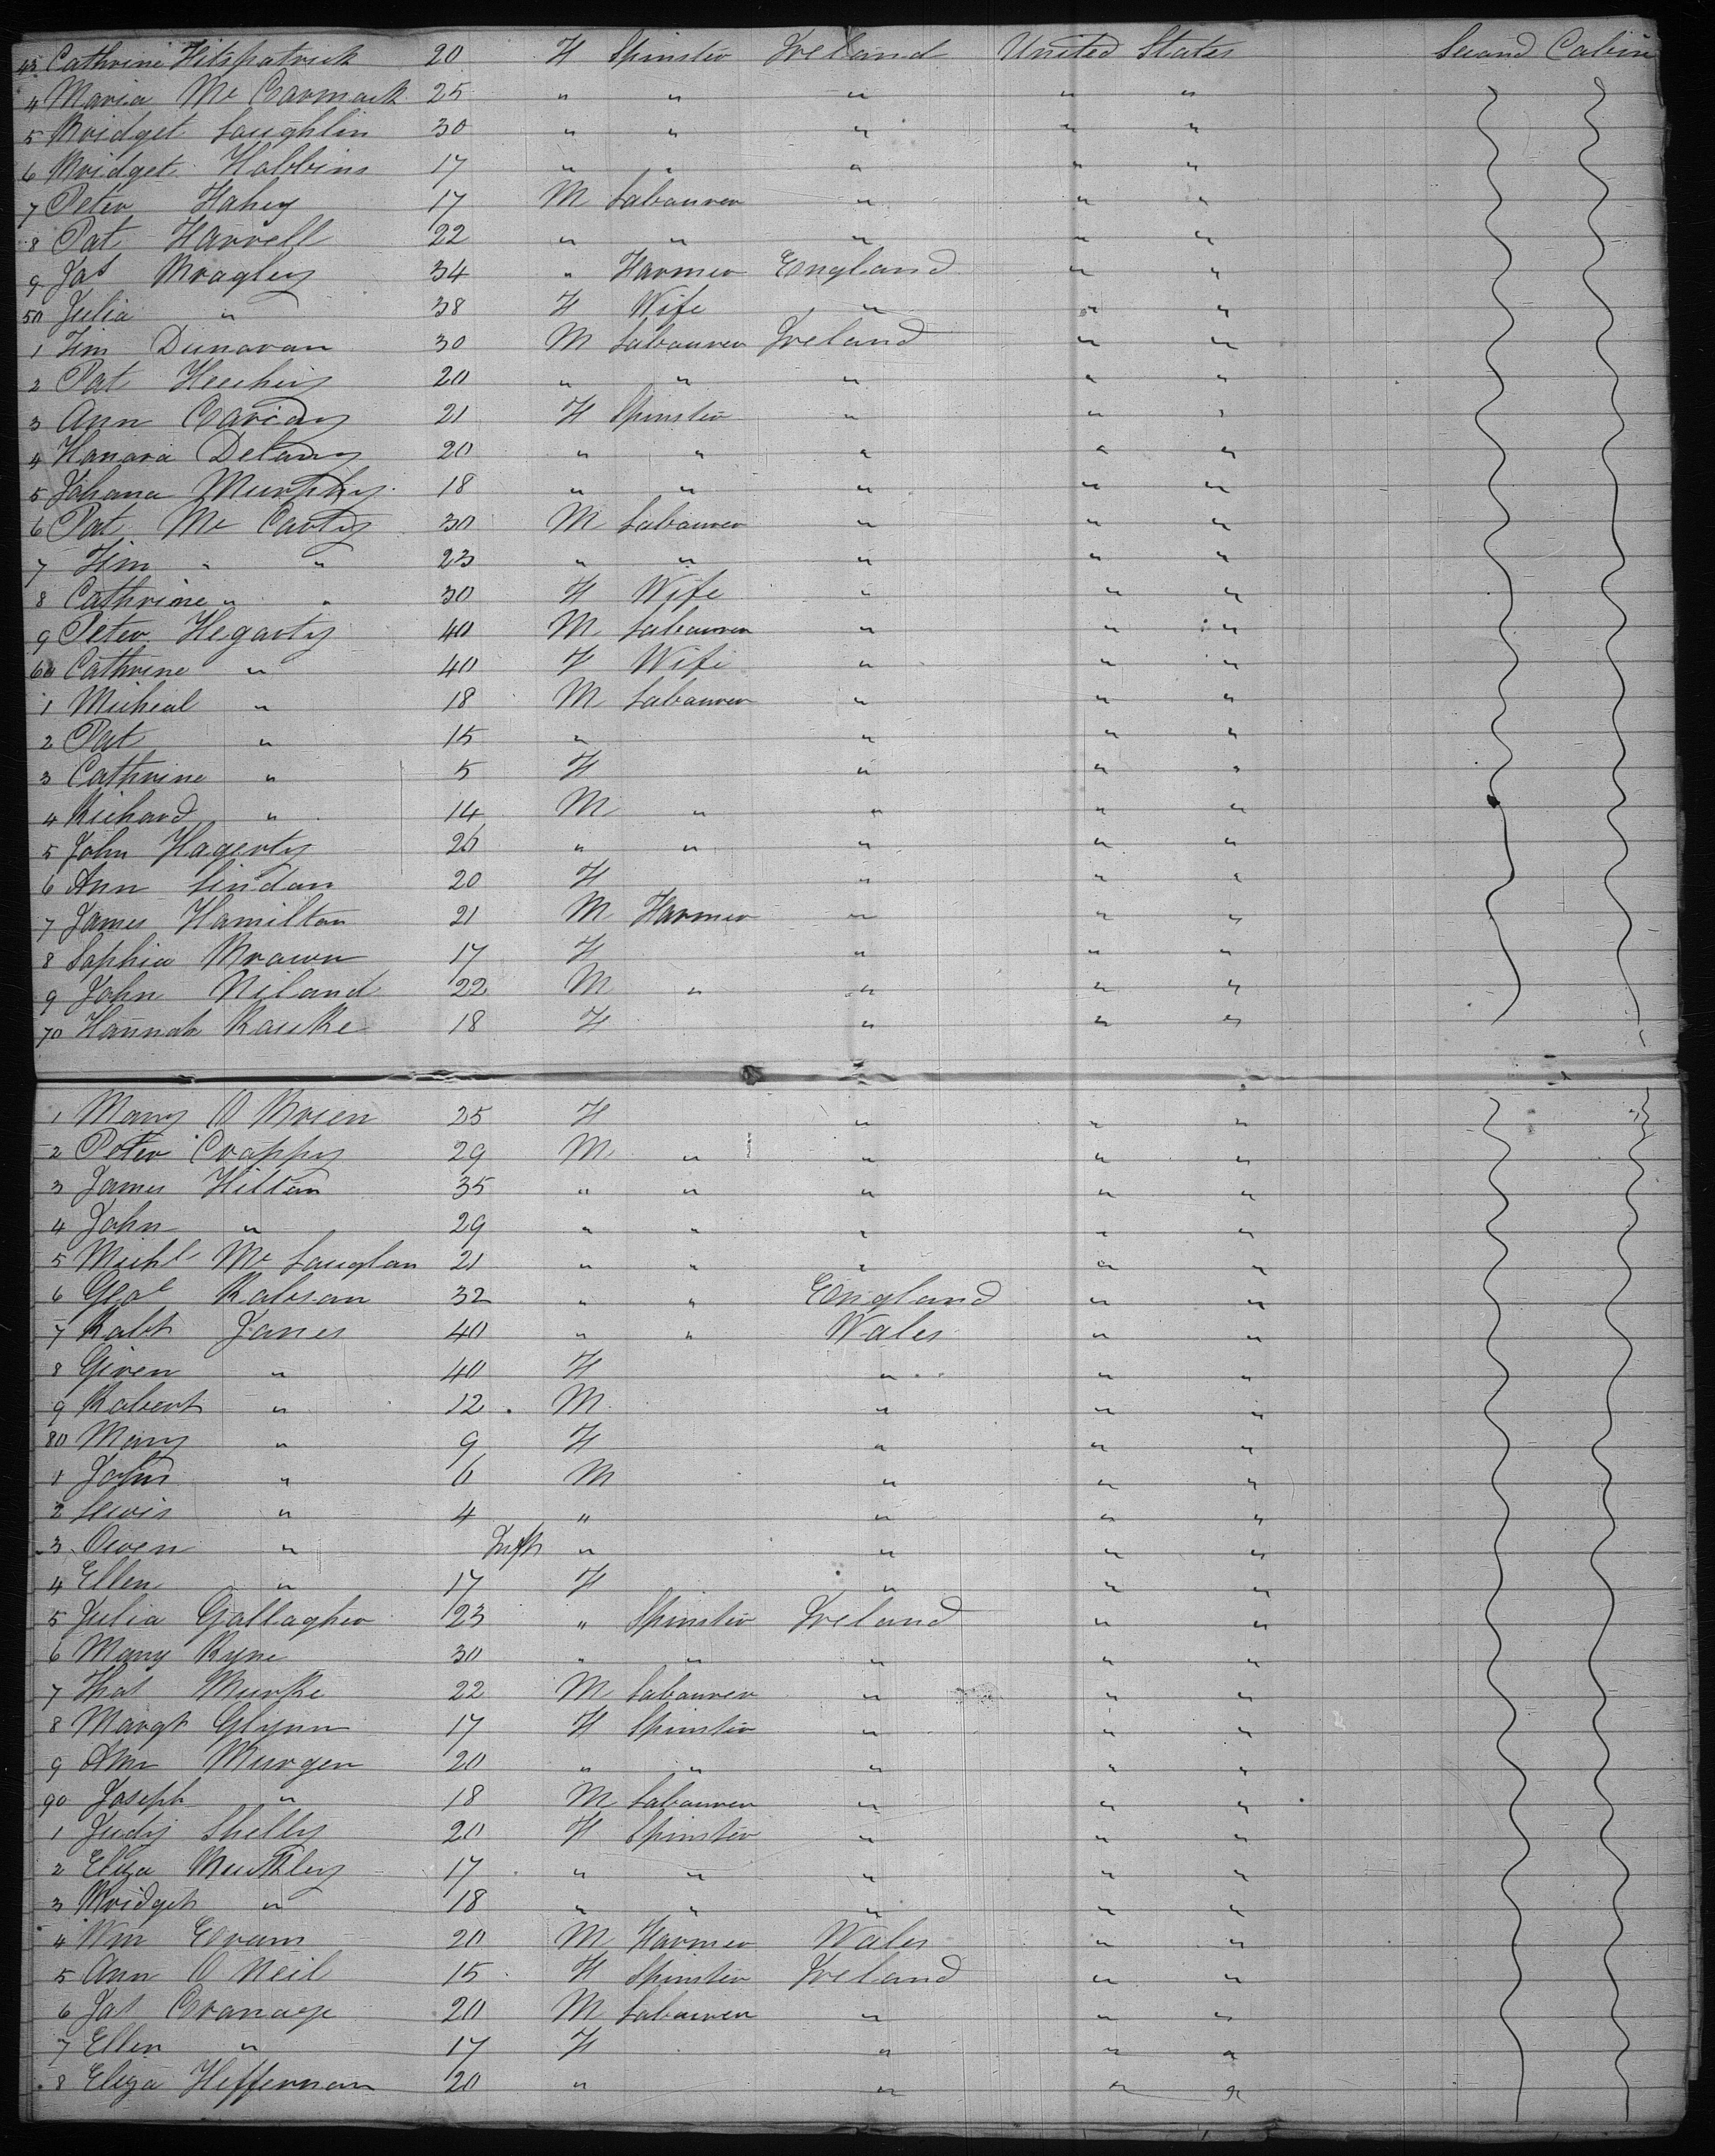 43 Cathrine Fitspatrick 20 F Spinster Ireland United States Second Cabin
4 Maria Mc Cormack 25 " " " " "
5 Bridget Loughlin 30 " " " " "
6 Bridget Hobbins 17 " " " " "
7 Peter Fahey 17 M Labourer " " "
8 Pat Farrell 22 " " " " "
9 Jas Bragley 34 " Farmer England " "
50 Julia " 38 F Wife " " "
1 Tim Dunovan 30 M Labourer Ireland " "
2 Pat 20 " " " " "
3 Ann 21 F Spinster " " "
4 Hanora Delany 20 " " " " "
5 Johana Murphy 18 " " " " "
6 Pat Mc Carty 30 M Labourer " " "
7 Tim " " 23 " " " " "
8 Cathrine " " 30 F Wife " " "
9 Peter Hegarty 40 M Labourer " " "
60 Cathrine " 40 F Wife " " "
1 Michial " 18 M Labourer " " "
2 Pat " 15 " " " "
3 Cathrine " 5 F " " "
4 Richard " 14 M " " " "
5 John Hagerty 26 " " " " "
6 Ann Lindon 20 F " " "
7 James Hamilton 21 M Farmer " " "
8 Sophia Brown 17 F " " "
9 John Niland 22 M " " " "
70 Hannah Rourke 18 F " " "
1 Mary O Brien 25 F " " "
2 Peter Crappy 29 M " " " "
3 James Hilton 35 " " " " "
4 John " 29 " " " " "
5 Michl Mc Louglan 21 " " " " "
6 Geoe Robson 32 " " England " "
7 Robt Jones 40 " " Wales " "
8 Given " 40 F " " "
9 Robert " 12 M " " "
80 Mary " 9 F " " "
1 John " 6 M " " "
2 Lewis " 4 " " " "
3 Owen " Inft " " " "
4 Ellen " 17 F " " "
5 Julia Gallagher 23 " Spinster Ireland " "
6 Mary Ryne 30 " " " " "
7 Thos Burke 22 M Labourer " " "
8 Margt Glynn 17 F Spinster " " "
9 Ann Murgen 20 " " " " "
90 Joseph " 18 M Labourer " " "
1 Judy Shelly 20 F Spinster " " "
2 Eliza Buckley 17 " " " " "
3 Bridget " 18 " " " " "
4 Wm Evans 20 M Farmer Wales " "
5 Ann O Neil 15 F Spinster Ireland " "
6 Jas 20 M Labourer " " "
7 Ellen " 17 F " " "
8 Eliza Heffernan 20 " " " "